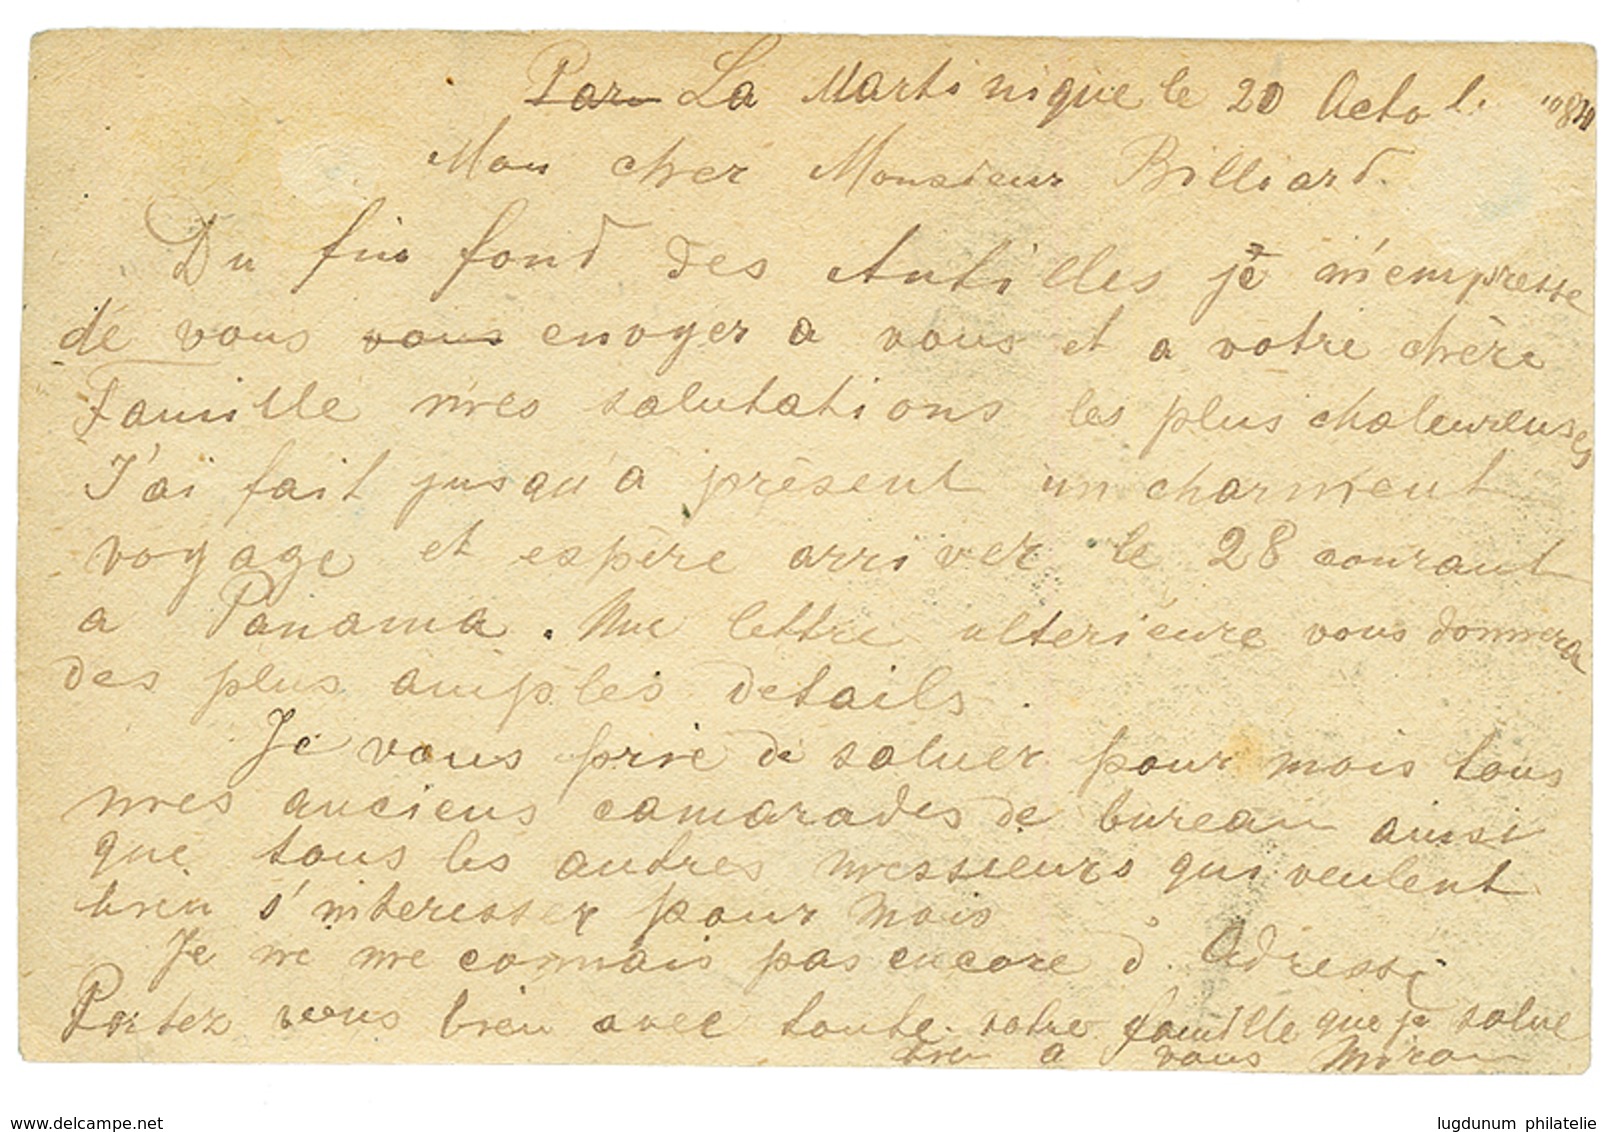 Par La Martinique le 20 Octo
Mon cher Monsieur Billiard.
Du fin fond des Antilles je m'empresse
de vous vous envoyer a vous et a votre chère
Famille mes salutations les plus chaleureuses
J'ai fait jusqu'à présent un charment
voyage et espère arriver le 28 courant
a Panama. Une lettre ulterieure vous donnera
des plus amples details.
Je vous prie de saluer pour mois tous
mes anciens camarades de bureau ainsi
que tous les autres messieurs qui veulent
bien s'interesser pour mois
Je ne me connais pas encore d'Adresse
Portez vous bien avec toute votre famille que je salue
bien a vous
delcampe.net
lugdunum philatelie